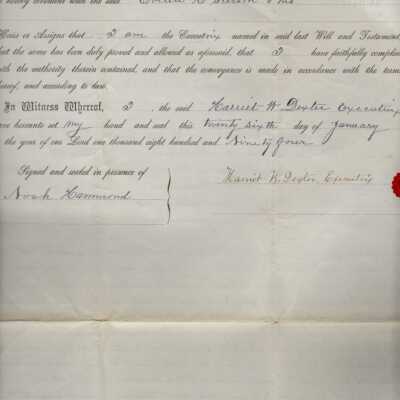 hereby covenant with the said
Heirs or Assigns that I am the Executrix named in said last Will and Testament
that the same has been duly proved and allowed as aforesaid, that I have faithfully complied
with the authority therein contained, and that the conveyance is made in accordance with the terms
thereof, and according to law.
In Witness Whereof, I the said Harriet W Dexter executrix
have hereunto set my hand and seal this twenty sixth day of January
the year of our Lord one thousand eight hundred and Ninety four
Signed and sealed in presence of
Harriet W. Dexter, Executrix
Noah Hammond